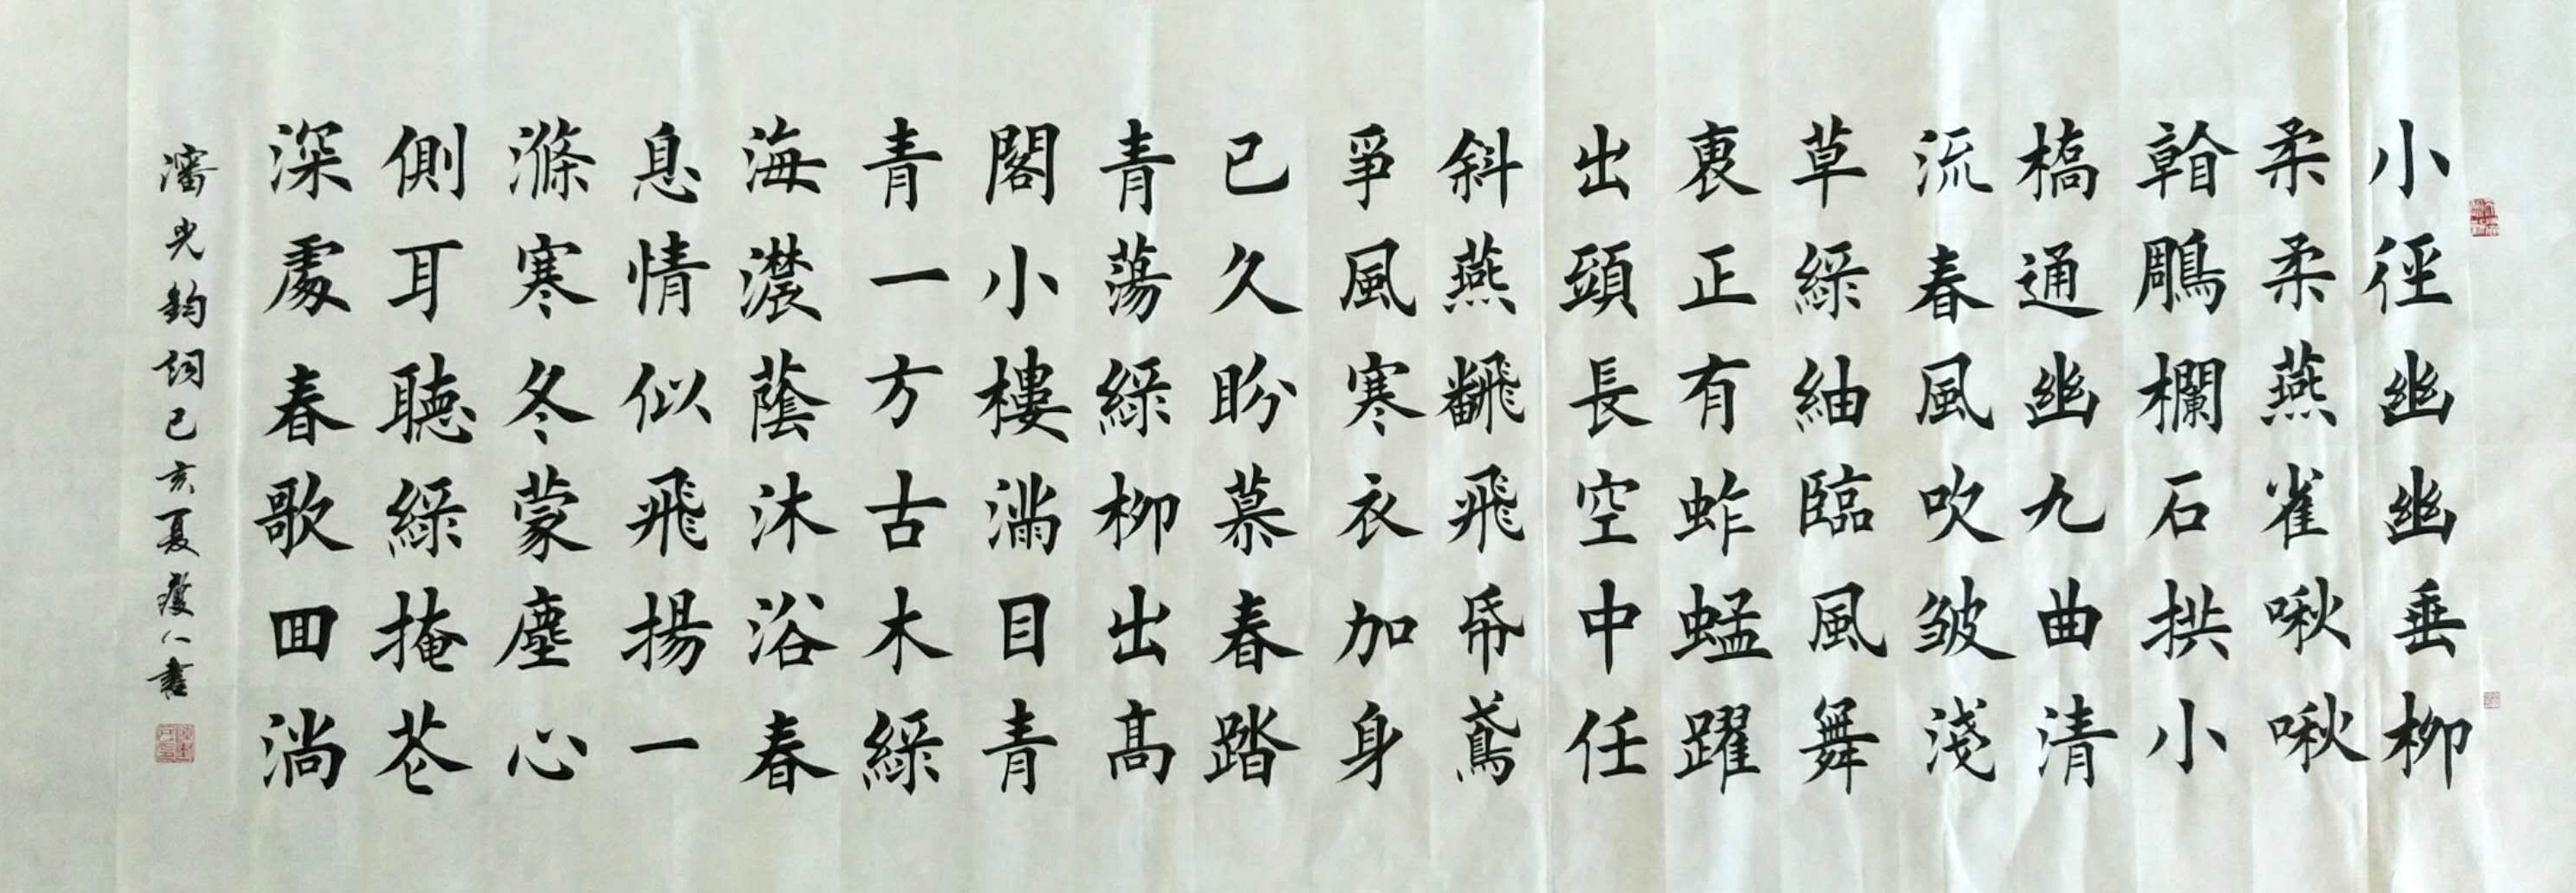 小徑幽幽垂柳
柔柔燕雀啾啾
榦鵰欄石拱小
橋通幽九曲清
流春風吹皺淺
草綠紬臨風舞
裏正有蚱蜢躍
出頭長空中任
斜燕飜飛帋鳶
爭風寒衣加身
已久盼慕春踏
青蕩綠柳出高
閣小樓滿目青
青一方古木綠
海濃蔭沐浴春
息情似飛揚一
滌寒冬蒙塵心
側耳聽綠掩花
深處春歌回淌
瀋光鈞詞己亥夏人書